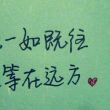 一如既往
等在远方